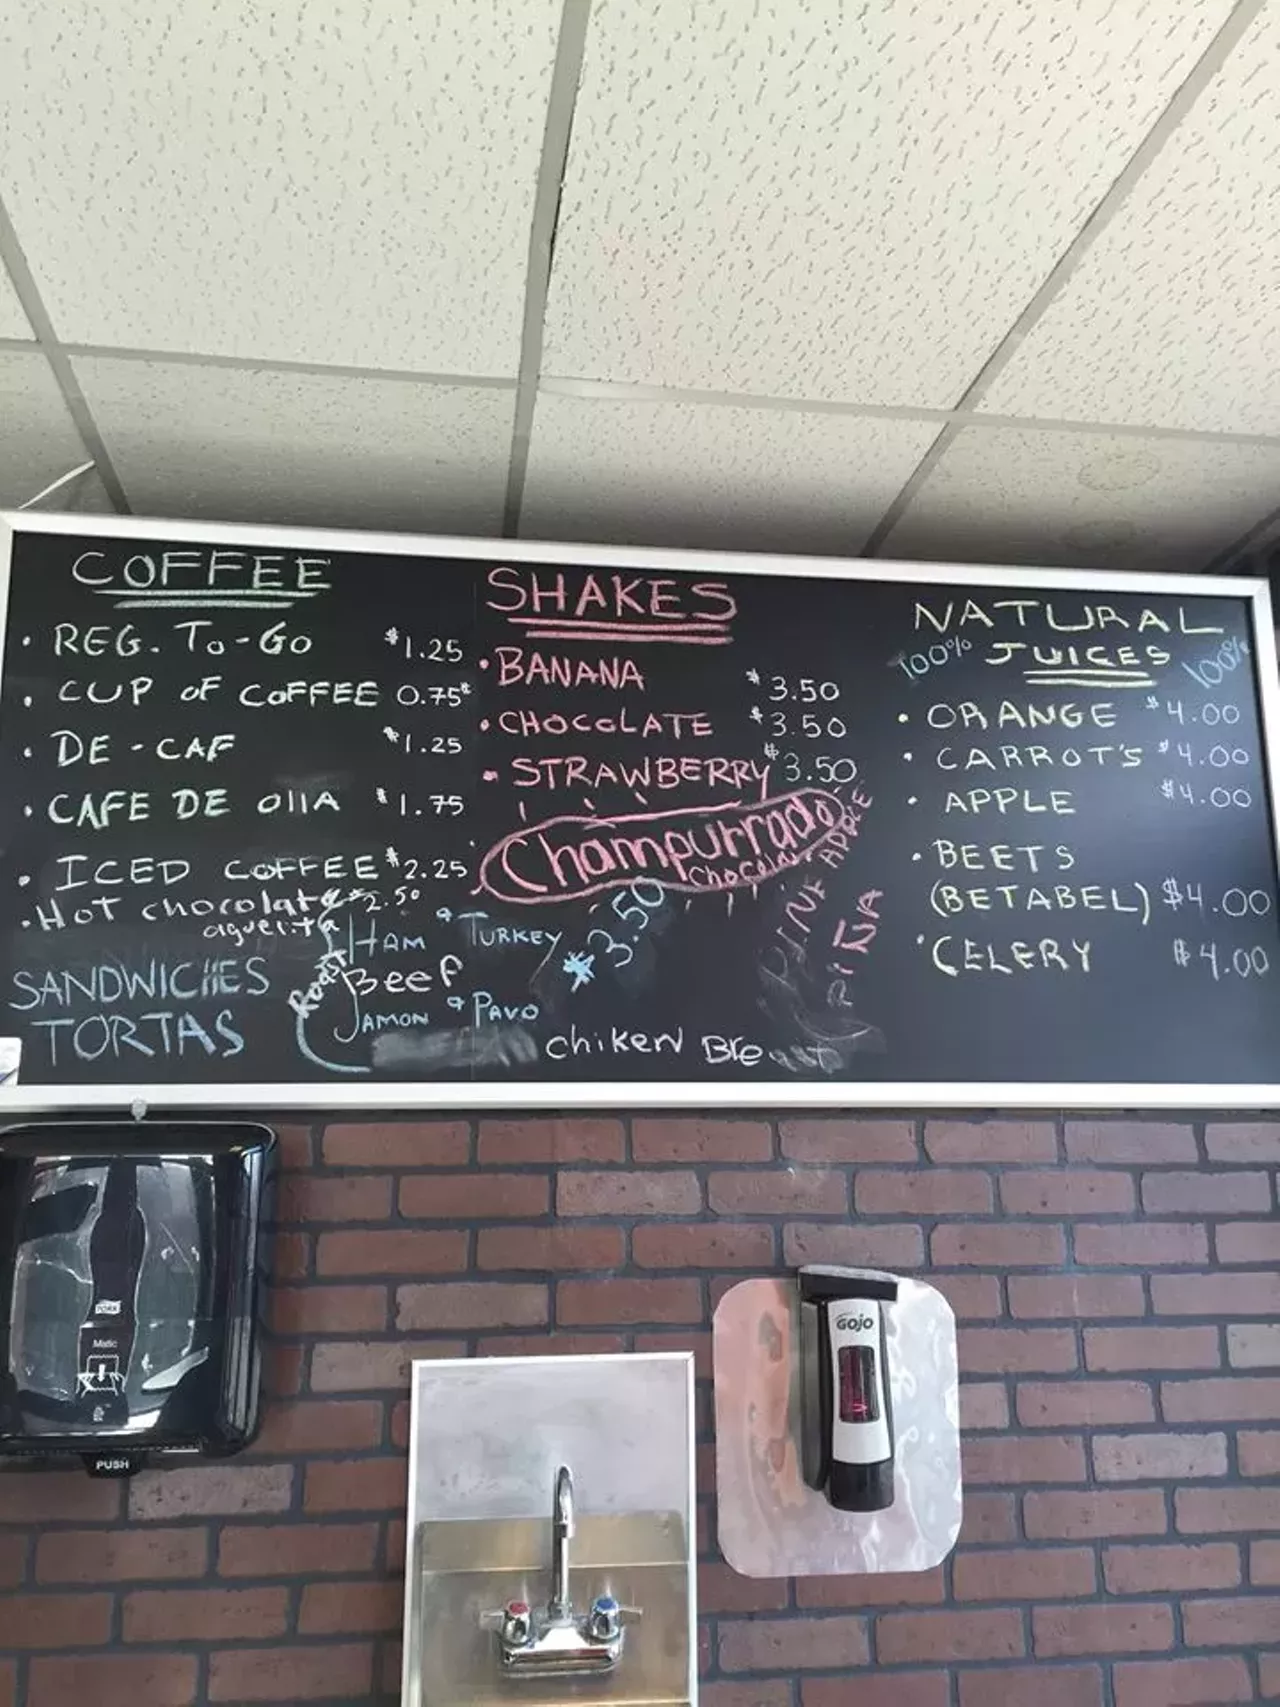 COFFEE
• REG. TO-GO $1.25
• CUP OF COFFEE 0.75¢
• DE-CAF $1.25
• CAFE DE OllA $1.75
• ICED COFFEE $2.25
• Hot chocolate $2.50
aguelita
SANDWICHES
TORTAS
HAM & TURKEY
Roast Beef
JAMON & PAVO
$3.50
chiken Breast
SHAKES
• BANANA $3.50
• CHOCOLATE $3.50
• STRAWBERRY $3.50
Champurrado
PINEAPPLE
PIÑA
NATURAL
100% JUICES 100%
• ORANGE $4.00
• CARROT'S $4.00
• APPLE $4.00
• BEETS
(BETABEL) $4.00
• CELERY $4.00
TORK
Matic
PUSH
GOJO